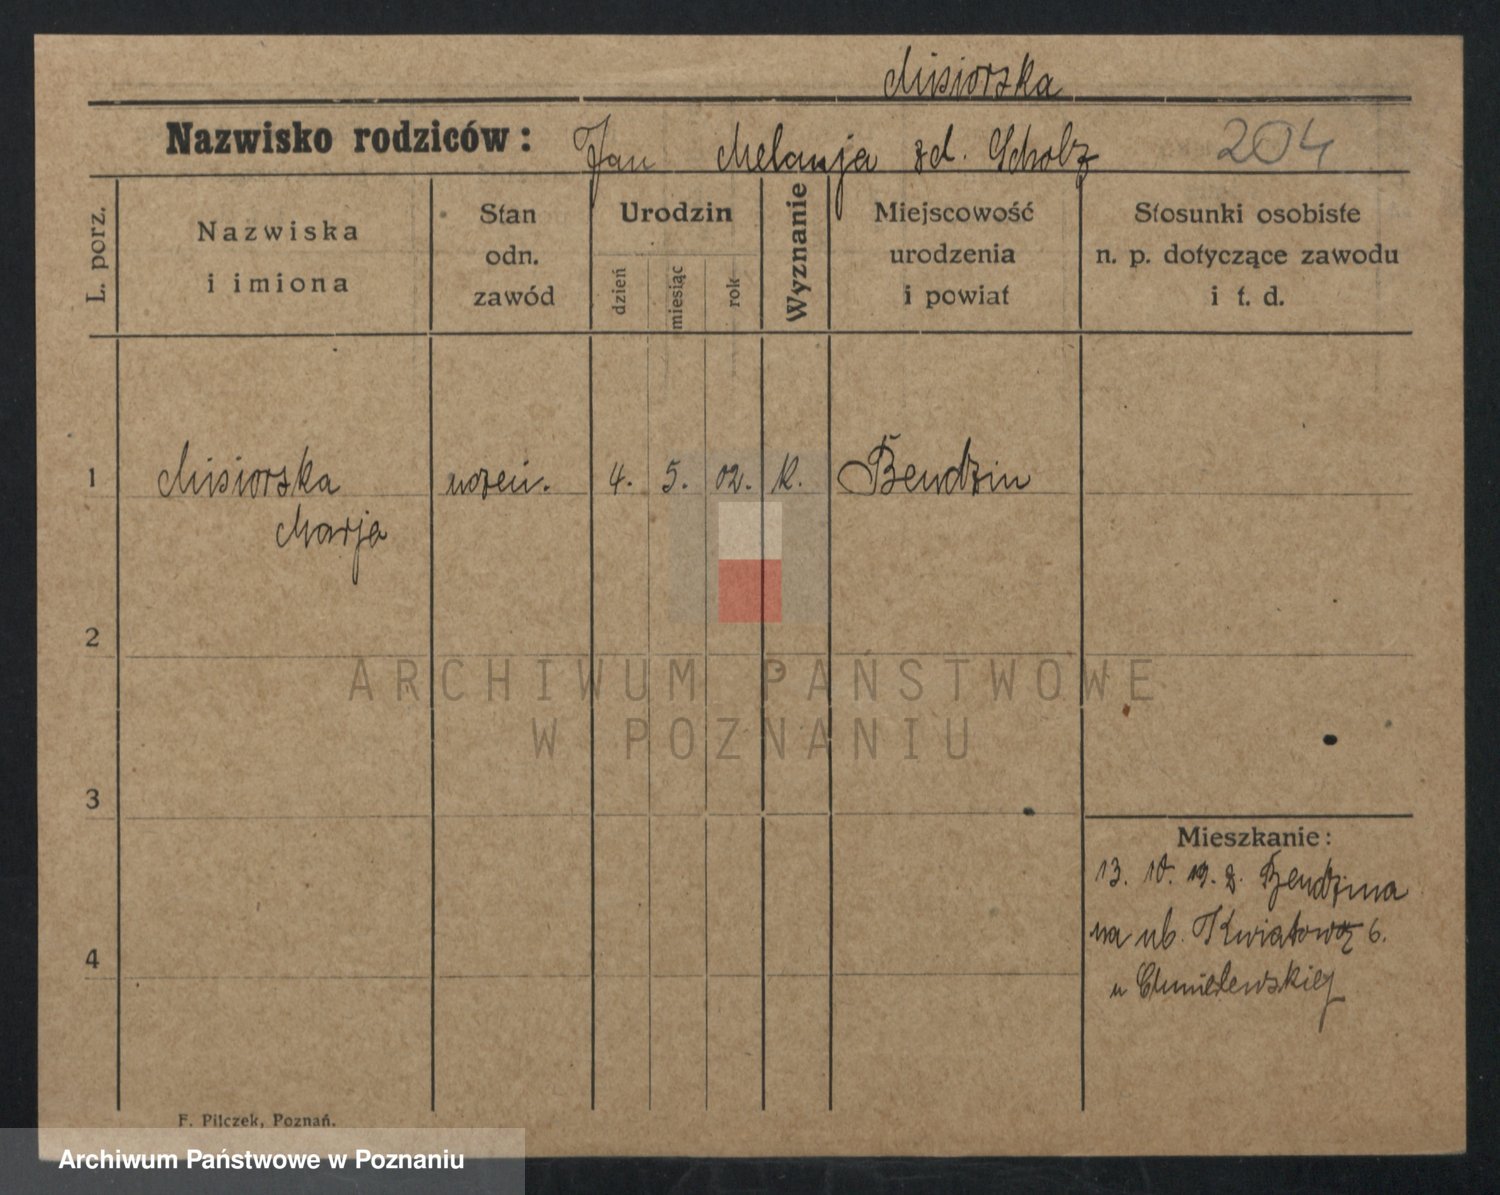 Misiorska
Nazwisko rodziców: Jan Melanja zd. Scholz 204
L. porz.
Nazwiska
i imiona
Stan
odn.
zawód
Urodzin
dzień
miesiąc
rok
Wyznanie
Miejscowość
urodzenia
i powiat
Stosunki osobiste
n. p. dotyczące zawodu
i t. d.
1 Misiorska 4. 5. 02. K. Bendzin
Marja
2
3
4
Mieszkanie:
13. 10. 19. z Bendzina
na ul. Kwiatową 6.
u Chmielewskiej
F. Pilczek, Poznań.
ARCHIWUM PAŃSTWOWE
W POZNANIU
Archiwum Państwowe w Poznaniu